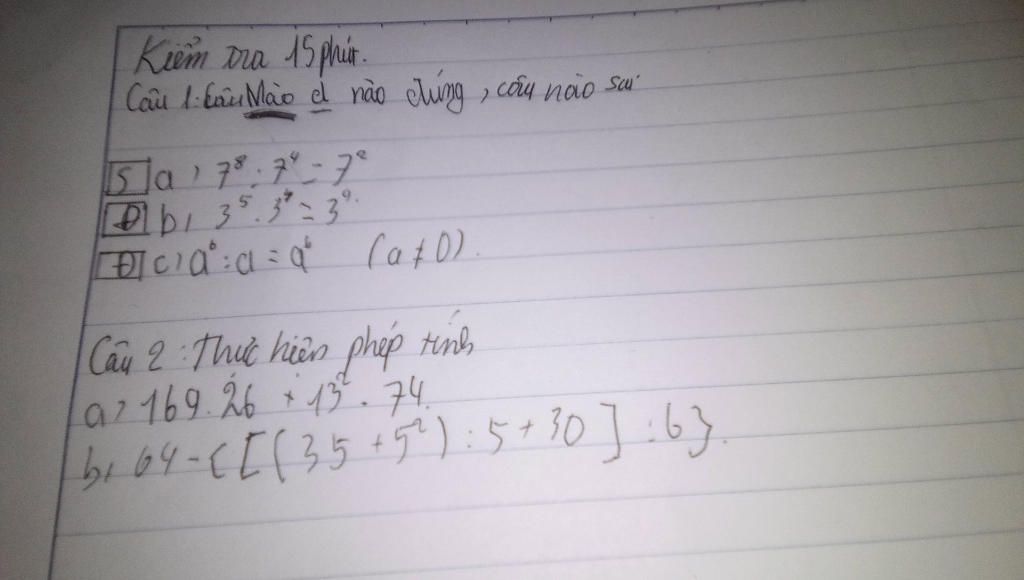 Kiểm tra 15 phút.
Câu 1: Câu Mào d nào đúng, câu nào sai
S a, 7⁸ : 7⁴ = 7²
Đ b, 3⁵ . 3⁴ = 3⁹.
Đ c, a⁶ : a = a⁶ (a ≠ 0).
Câu 2 : Thực hiện phép tính
a, 169 . 26 + 13² . 74.
b, 64 - { [ ( 35 + 5² ) : 5 + 30 ] : 6 }.